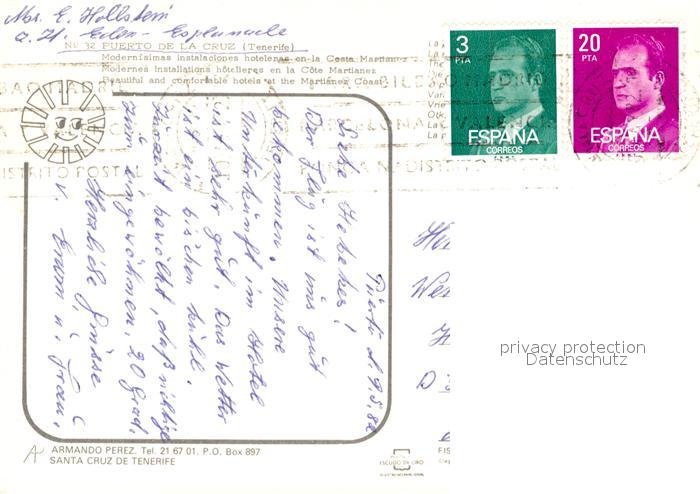 Mrs. E. Hollstein
a. H. Eden - Esplanade
Nº 32 PUERTO DE LA CRUZ (Tenerife)
Modernísimas instalaciones hoteleras en la Costa Martianez
Modernes installations hôtelleres en la Côte Martianez
Beautiful and comfortable hotels at the Martianez Coast
3
PTA
ESPAÑA
CORREOS
20
PTA
ESPAÑA
CORREOS
DISTRITO POSTAL
9.5.82
Liebe
Der Flug ist uns gut
bekommen. Unsere
Unterkunft im Hotel
ist sehr gut. Das Wetter
ist ein bischen kühl.
bewölkt, das richtige
zum eingewöhnen. 20 Grad.
Herzliche Grüsse
v. Erwin u. Frau.
D
privacy protection
Datenschutz
ARMANDO PEREZ. Tel. 21 67 01. P.O. Box 897
SANTA CRUZ DE TENERIFE
ESCUDO DE ORO